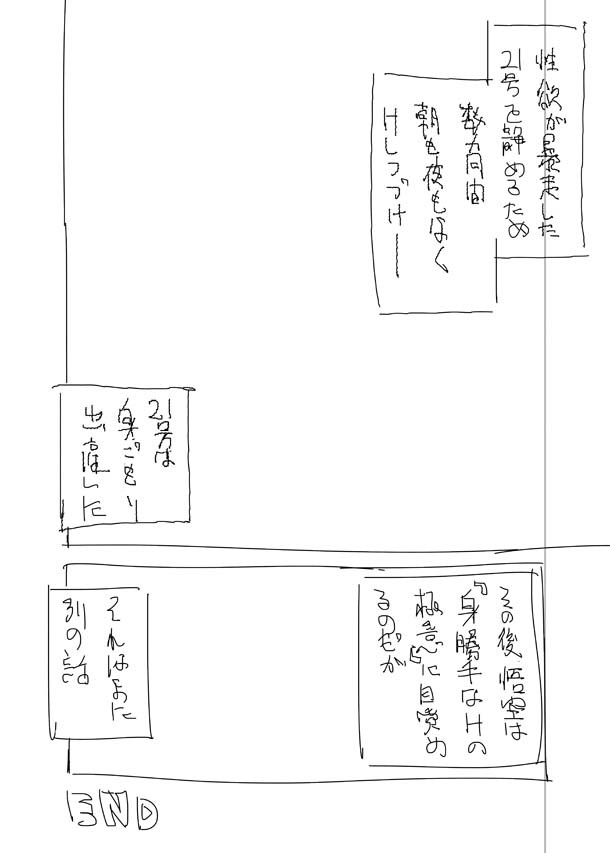 性欲が暴走した
21号を静めるため
数ヶ月間
朝も夜もなく
Hしつづけ――
21号は
身ごもり
出産した
その後悟空は
『身勝手なHの
極意』に目覚め
るのだが
それはまた
別の話
END